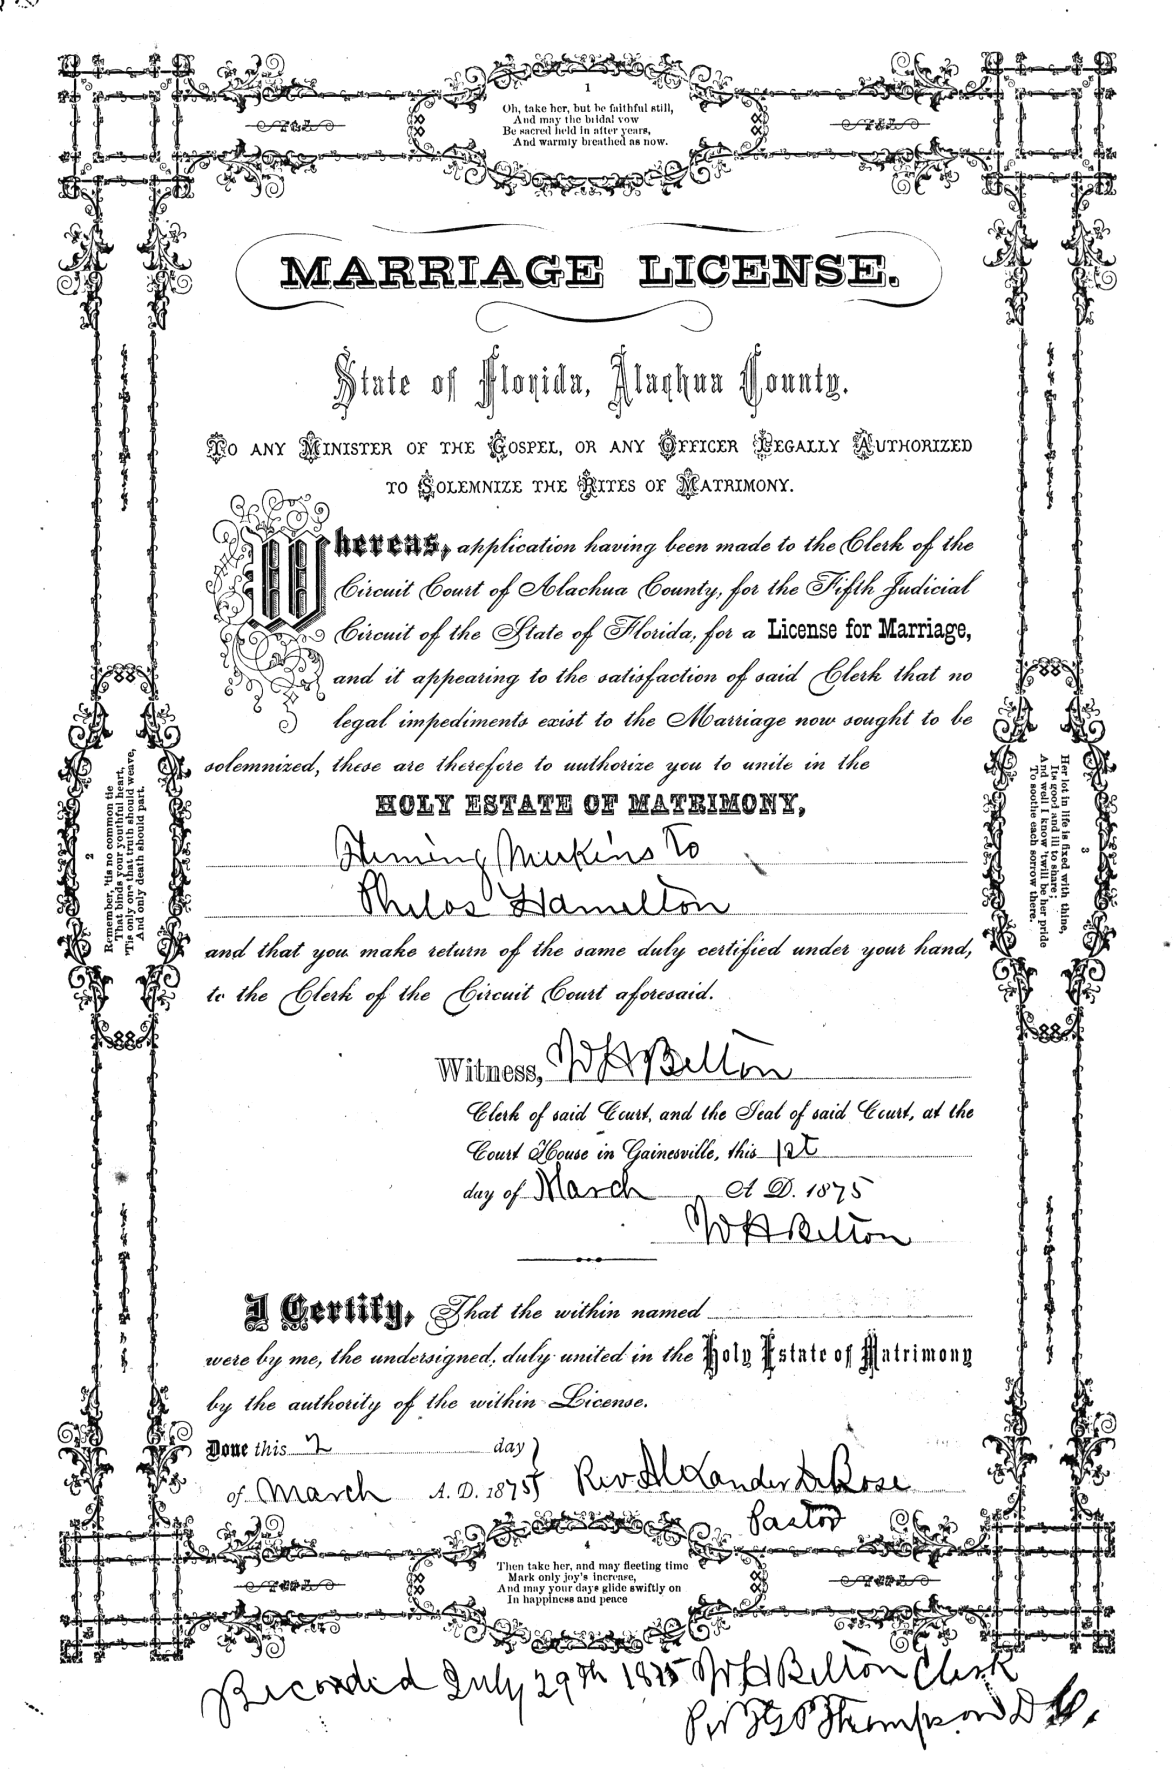 1
Oh, take her, but be faithful still,
And may the bridal vow
Be sacred held in after years,
And warmly breathed as now.
MARRIAGE LICENSE.
State of Florida, Alachua County.
TO ANY MINISTER OF THE GOSPEL, OR ANY OFFICER LEGALLY AUTHORIZED
TO SOLEMNIZE THE RITES OF MATRIMONY.
Whereas, application having been made to the Clerk of the
Circuit Court of Alachua County, for the Fifth Judicial
Circuit of the State of Florida, for a License for Marriage,
and it appearing to the satisfaction of said Clerk that no
legal impediments exist to the Marriage now sought to be
solemnized, these are therefore to authorize you to unite in the
HOLY ESTATE OF MATRIMONY,
Fleming Mickins To
Philas Hamelton
and that you make return of the same duly certified under your hand,
to the Clerk of the Circuit Court aforesaid.
2
Remember, 'tis no common tie
That binds your youthful heart,
'Tis only one that truth should weave,
And only death should part.
3
Her lot in life is fixed with thine,
Its good and ill to share;
And well I know 'twill be her pride
To soothe each sorrow there.
Witness, W H Belton
Clerk of said Court, and the Seal of said Court, at the
Court House in Gainesville, this 1st
day of March A D. 1875
W H Belton
I Certify, That the within named
were by me, the undersigned, duly united in the Holy Estate of Matrimony
by the authority of the within License.
Done this 2 day
of March A. D. 1875 Rev Alexander DeBose
Pastor
4
Then take her, and may fleeting time
Mark only joy's increase,
And may your days glide swiftly on
In happiness and peace
Recorded July 29th 1875 W H Belton Clerk
Per Thompson D C.